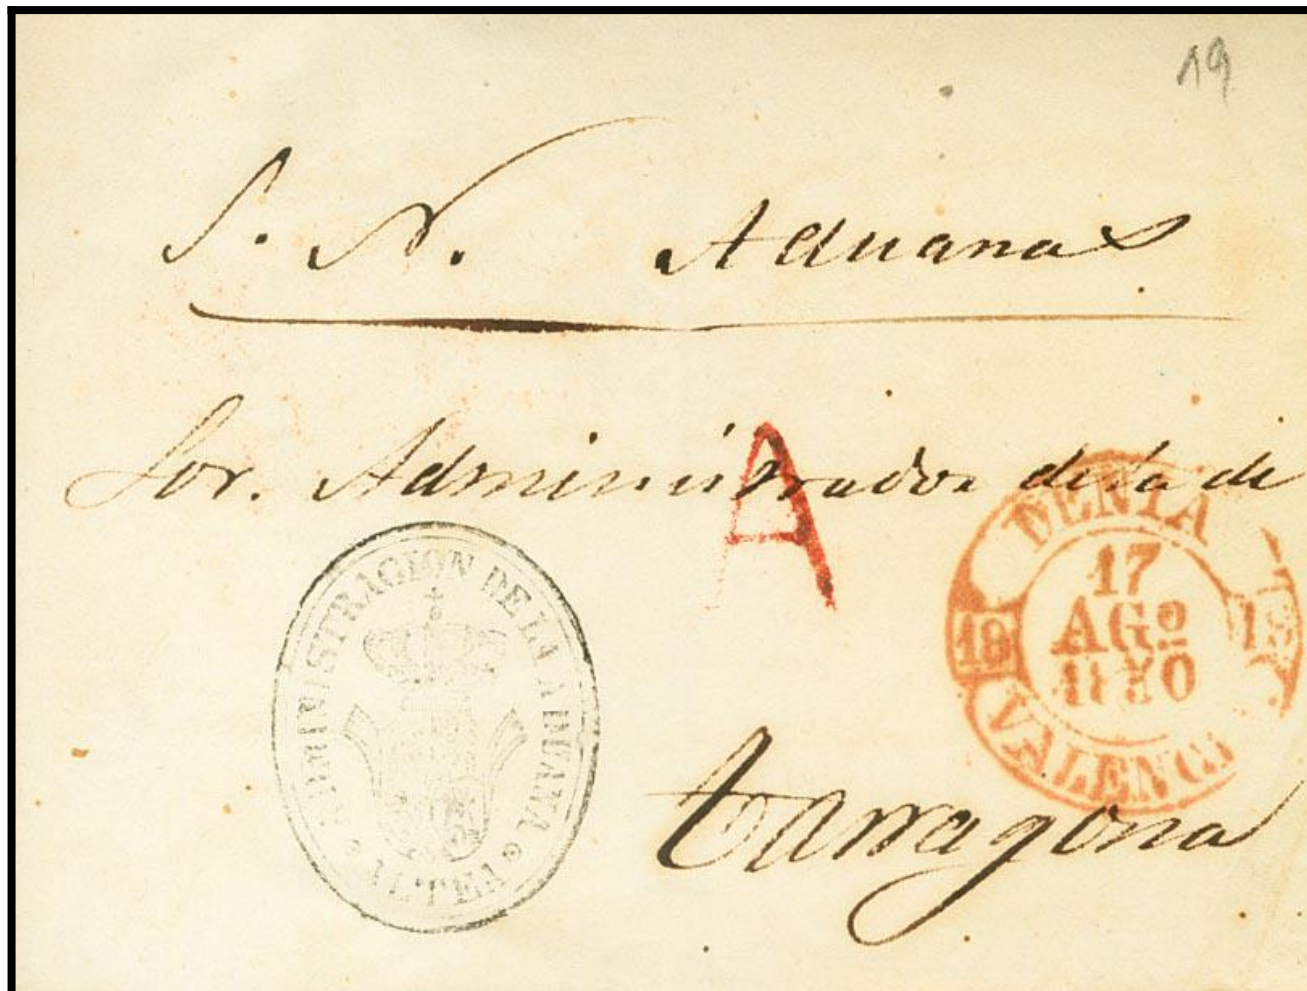 19
S. N. Aduanas
Sor. Administrador de la de
A
ADMINISTRACION DE LA ADUANA
ALTEA
DENIA
17
AGO
18
VALENCI
Tarragona